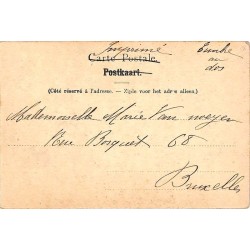 Imprimé
Timbre
au
dos
Carte Postale
Postkaart.
(Côté réservé à l'adresse. — Zijde voor het adres alleen.)
Mademoiselle Marie Van meyer
Rue Bosquet 68
Bruxelles